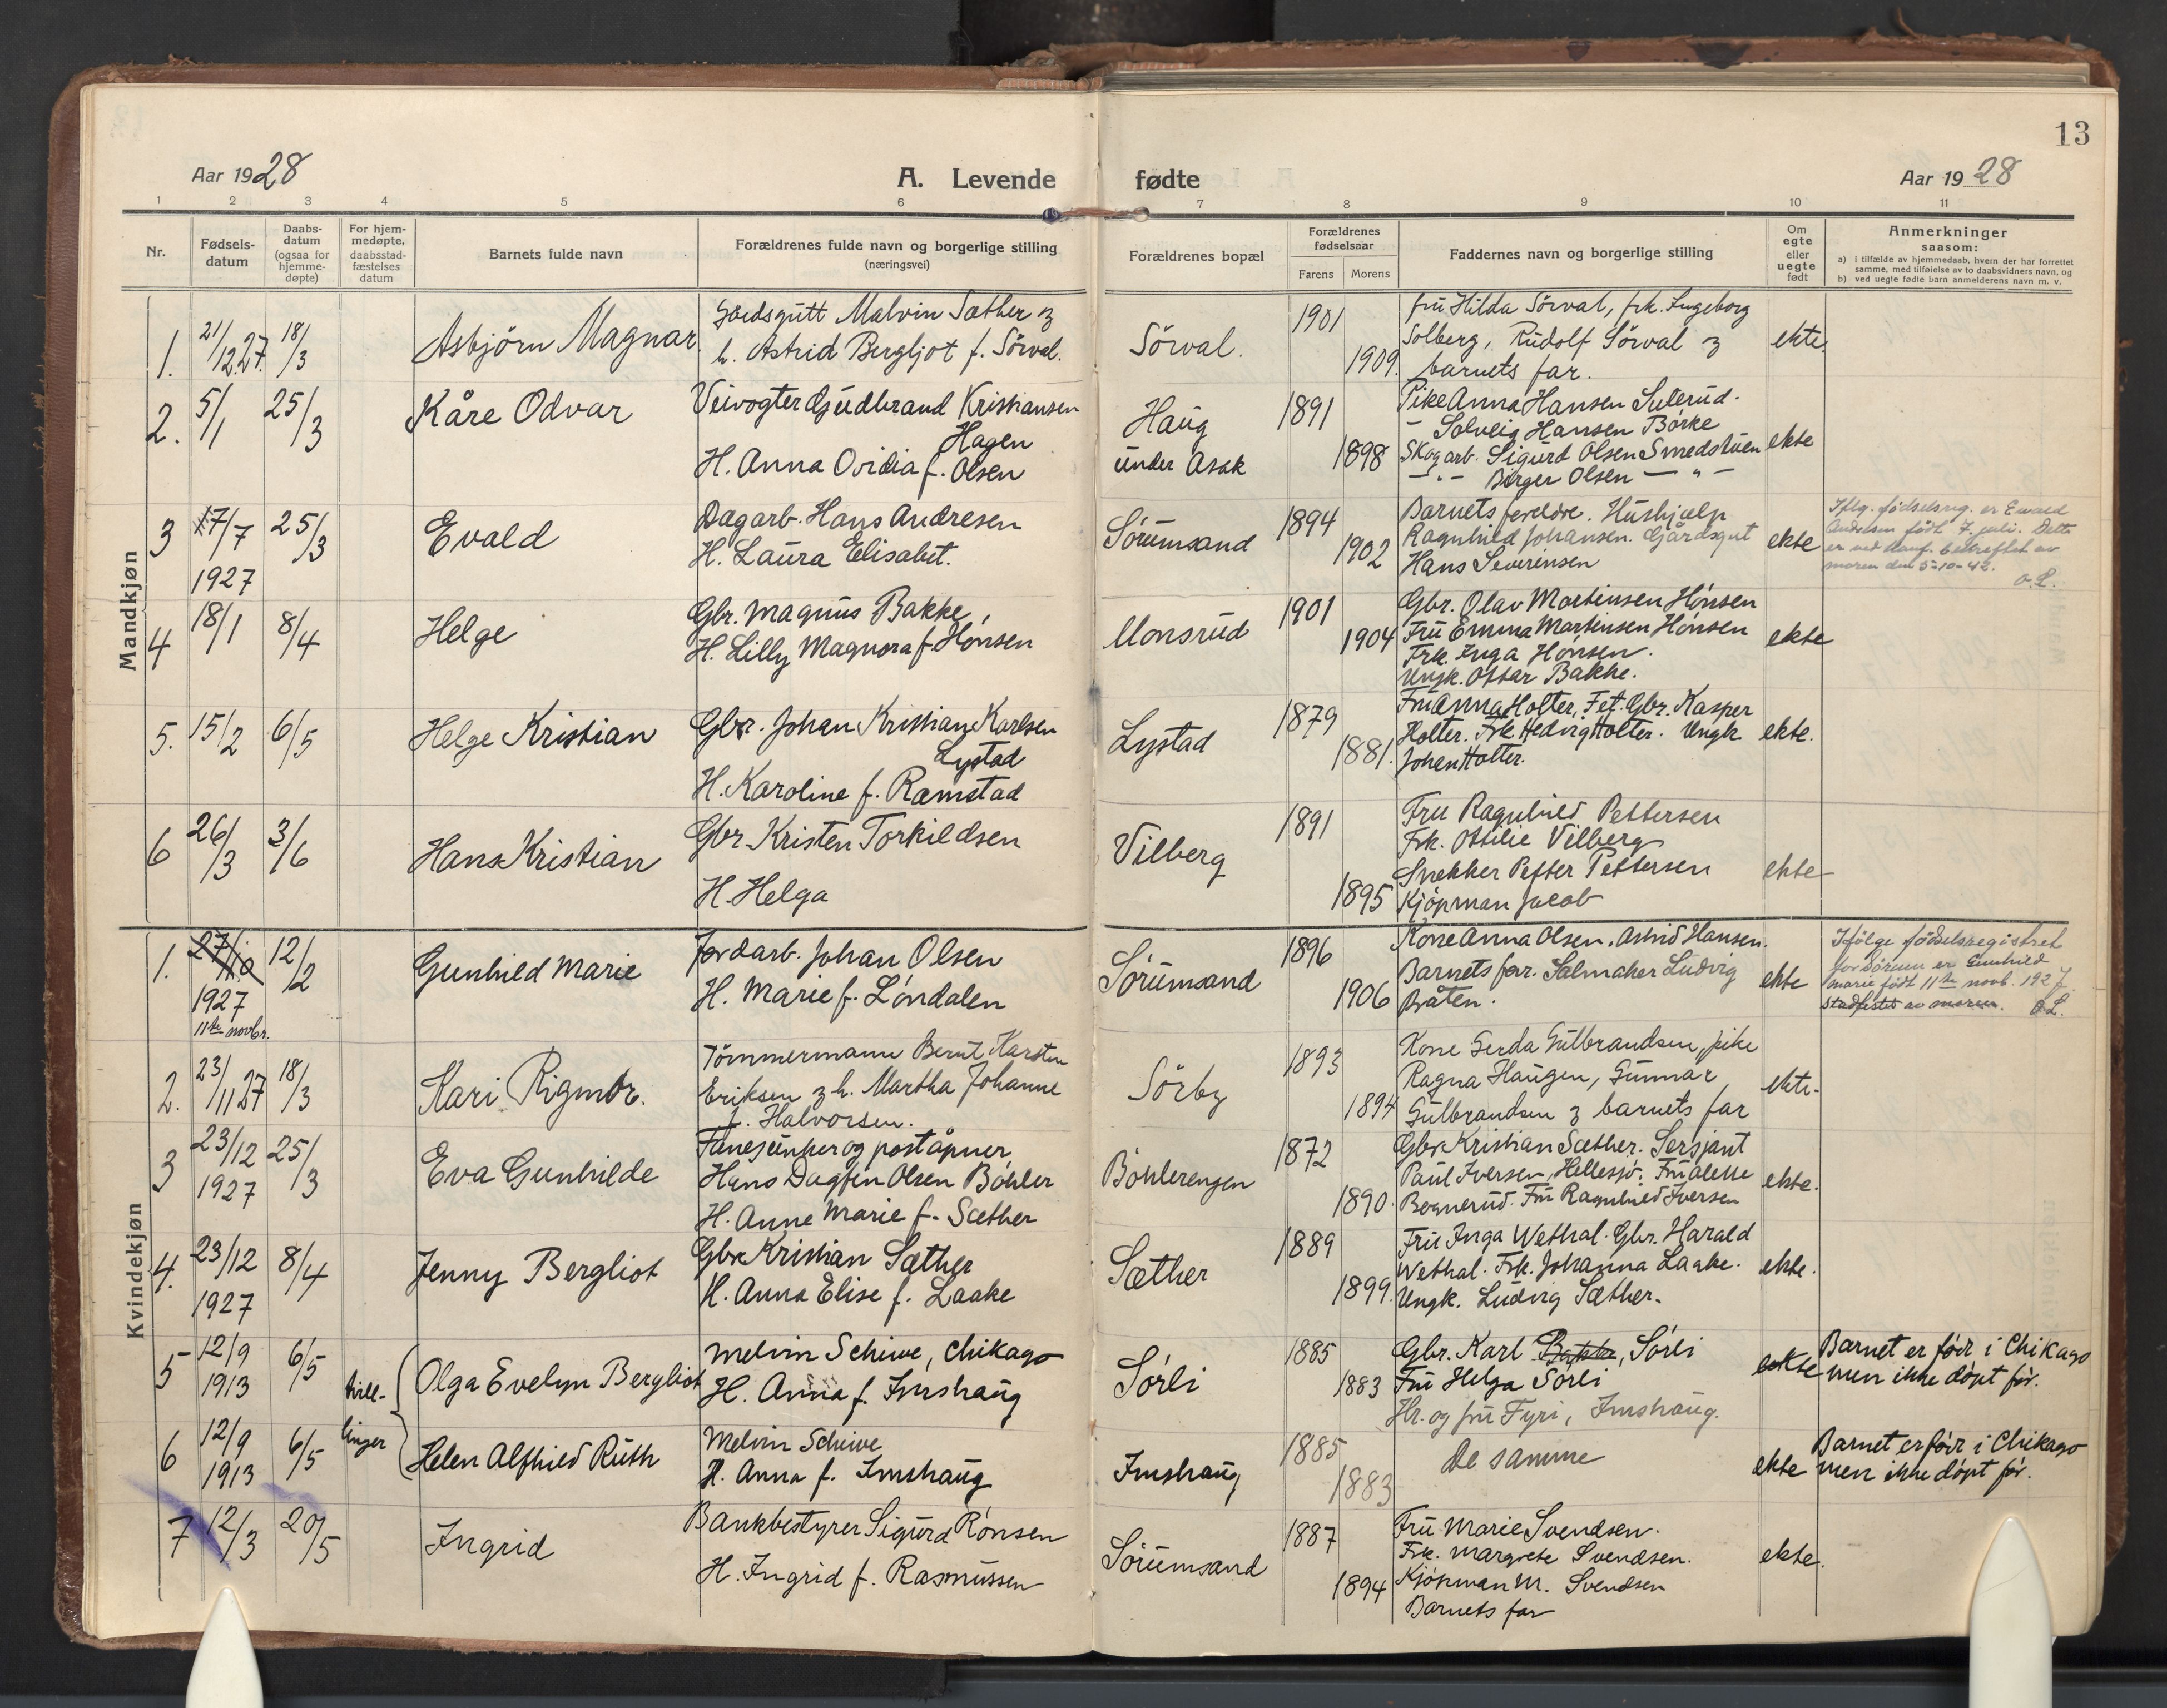 13
Aar 1928
A. Levende fødte
Aar 1928
1 2 3 4 5 6 7 8 9 10 11
Nr.
Fødsels-
datum
Daabs-
datum
(ogsaa for
hjemme-
døpte)
For hjem-
medøpte,
daabsstad-
fæstelses
datum
Barnets fulde navn
Forældrenes fulde navn og borgerlige stilling
(næringsvei)
Forældrenes bopæl
Forældrenes
fødselsaar
Farens Morens
Faddernes navn og borgerlige stilling
Om
egte
eller
uegte
født
Anmerkninger
saasom:
a) i tilfælde av hjemmedaab, hvem der har forrettet
samme, med tilføielse av to daabsvidners navn, og
b) ved uegte fødte barn anmelderens navn m. v.
Mandkjøn
1. 21/12.27. 18/3
Asbjörn Magnar.
Gårdsgutt Malvin Sæther &
h. Astrid Bergljot f. Sörval.
Sörval.
1901
1909.
fru Hilda Sörval, frk. Ingeborg
Solberg, Rudolf Sörval &
barnets far.
ekte.
2. 5/1 25/3
Kåre Odvar
Veivogter Gudbrand Kristiansen
Hagen
H. Anna Ovidia f. Olsen
Haug
under Asak
1891
1898
Pike Anna Hansen Suterud.
- Solveig Hansen Börke
Skogarb. Sigurd Olsen Smedstuen
- " - Birger Olsen - " -
ekte
3 17/7 1927 25/3
Evald
Dagarb. Hans Andresen
H. Laura Elisabet.
Sörumsand
1894
1902
Barnets foreldre. Hushjælp
Ragnhild Johansen. Gårdsgut
Hans Severinsen
ekte
Iflg. fødselsreg. er Evald
Andresen født 7 juli. Dette
er ved konf. bekreftet av
moren den 5-10-42.
O.L.
4 18/1 8/4
Helge
Gbr. Magnus Bakke
H. Lilly Magnora f. Hönsen
Monsrud
1901
1904
Gbr. Olav Martinsen Hönsen
Fru Emma Martinsen Hönsen
Frk. Inga Hönsen.
Ungk. Ottar Bakke.
ekte
5. 15/2 6/5
Helge Kristian
Gbr. Johan Kristian Karlsen
Lystad
H. Karoline f. Ramstad
Lystad
1879
1881.
Fru Anna Holter, Fet. Gbr. Kasper
Holter. Frk. Hedvig Holter. Ungk
Johan Holter.
ekte.
6 26/3 3/6
Hans Kristian
Gbr. Kristen Torkildsen
H. Helga
Vilberg
1891
1895
Fru Ragnhild Pettersen
Frk. Ottilie Vilberg
Snekker Petter Pettersen
Kjöpman Jacob
ekte
Kvindekjøn
1. 27/10 1927 12/2
11te novbr.
Gunhild Marie
Jordarb. Johan Olsen
H. Marie f. Löndalen
Sörumsand
1896
1906
Kone Anna Olsen. Astrid Hansen.
Barnets far. Salmaker Ludvig
Bråten.
ekte
Ifölge födselsregistret
for Sörum er Gunhild
Marie födt 11te novb. 1927.
Stadfestet av moren. O.L.
2. 23/11 27 18/3
Kari Rigmor.
Tömmermann Bernt Karsten
Eriksen & h. Martha Johanne
f. Halvorsen.
Sörby
1893
1894
Kone Gerda Gulbrandsen, pike
Ragna Haugen, Gunnar
Gulbrandsen & barnets far
ekte.
3 23/12 1927 25/3
Eva Gunhilde
Fanejunker og poståpner
Hans Dagfin Olsen Böhler
H. Anne Marie f. Sæther
Böhlerengen
1872
1890.
Gbr Kristian Sæther. Sersjant
Paul Iversen, Hellesjö. Fru Alette
Bognerud. Fru Ragnhild Iversen
ekte.
4. 23/12 1927 8/4
Jenny Bergliot
Gbr Kristian Sæther
H. Anna Elise f. Laake
Sæther
1889
1899.
Fru Inga Wethal. Gbr. Harald
Wethal. Frk. Johanna Laake.
Ungk. Ludvig Sæther.
ekte.
5 12/9 1913 6/5
tvill-
Olga Evelyn Bergliot
Melvin Schiwe, Chikago
H. Anna f. Imshaug
Sörli
1885
1883
Gbr. Karl Sörli
Fru Helga Sörli
Hr. og fru Fyri, Imshaug.
ekte
Barnet er född i Chikago
men ikke döpt för.
6 12/9 1913 6/5
linger
Helen Alfhild Ruth
Melvin Schiwe
H. Anna f. Imshaug
Imshaug
1885
1883
De samme
ekte
Barnet er född i Chikago
men ikke döpt för.
7 12/3 20/5
Ingrid
Bankbestyrer Sigurd Rönsen
H. Ingrid f. Rasmussen
Sörumsand
1887
1894
Fru Marie Svendsen.
Frk. Margrete Svendsen.
Kjöpman M. Svendsen
Barnets far
ekte.